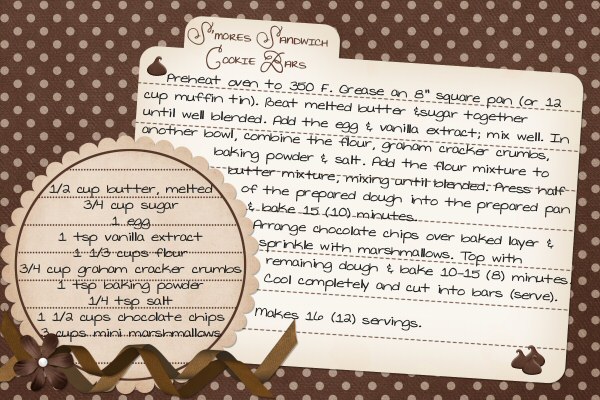 S'mores Sandwich
Cookie Bars
Preheat oven to 350 F. Grease an 8" square pan (or 12
cup muffin tin). Beat melted butter & sugar together
until well blended. Add the egg & vanilla extract; mix well. In
another bowl, combine the flour, graham cracker crumbs,
baking powder & salt. Add the flour mixture to
butter mixture, mixing until blended. Press half
of the prepared dough into the prepared pan
& bake 15 (10) minutes.
Arrange chocolate chips over baked layer &
sprinkle with marshmallows. Top with
remaining dough & bake 10-15 (8) minutes.
Cool completely and cut into bars (serve).
Makes 16 (12) servings.
1/2 cup butter, melted
3/4 cup sugar
1 egg
1 tsp vanilla extract
1 1/3 cups flour
3/4 cup graham cracker crumbs
1 tsp baking powder
1/4 tsp salt
1 1/2 cups chocolate chips
3 cups mini marshmallows